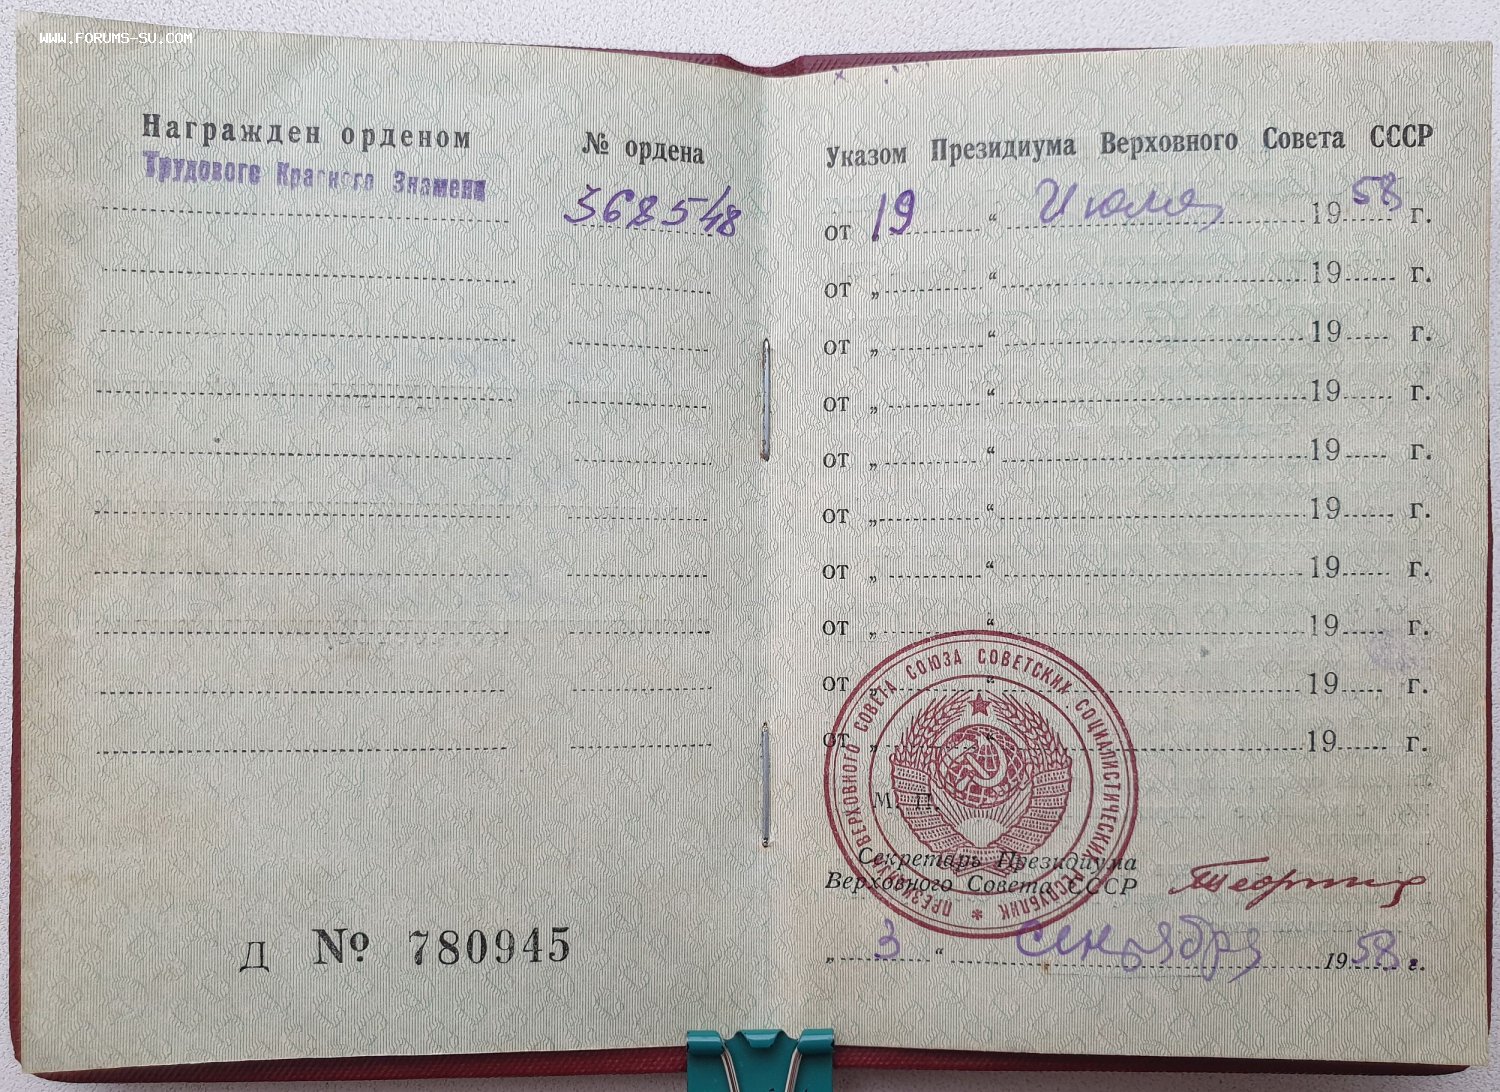 WWW.FORUMS-SU.COM
Награжден орденом
Трудового Красного Знамени
№ ордена
368548
Д № 780945
Указом Президиума Верховного Совета СССР
от 19 “ Июля 1958 г.
от „ “ 19 г.
от „ “ 19 г.
от „ “ 19 г.
от „ “ 19 г.
от „ “ 19 г.
от „ “ 19 г.
от „ “ 19 г.
от „ “ 19 г.
от „ “ 19 г.
М. П.
ПРЕЗИДИУМ ВЕРХОВНОГО СОВЕТА СОЮЗА СОВЕТСКИХ СОЦИАЛИСТИЧЕСКИХ РЕСПУБЛИК
Секретарь Президиума
Верховного Совета СССР
„ 3 “ сентября 1958 г.